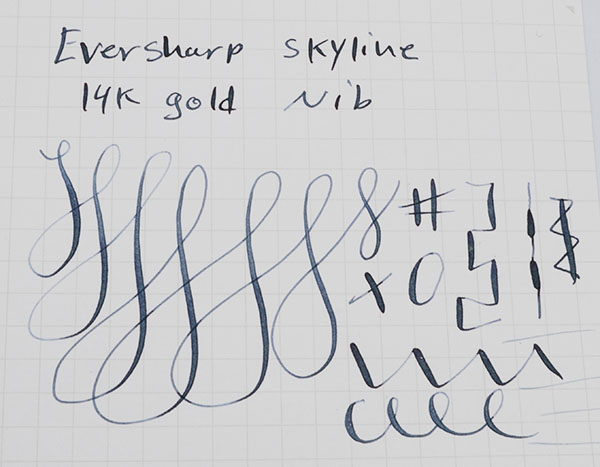 Eversharp Skyline
14K gold Nib